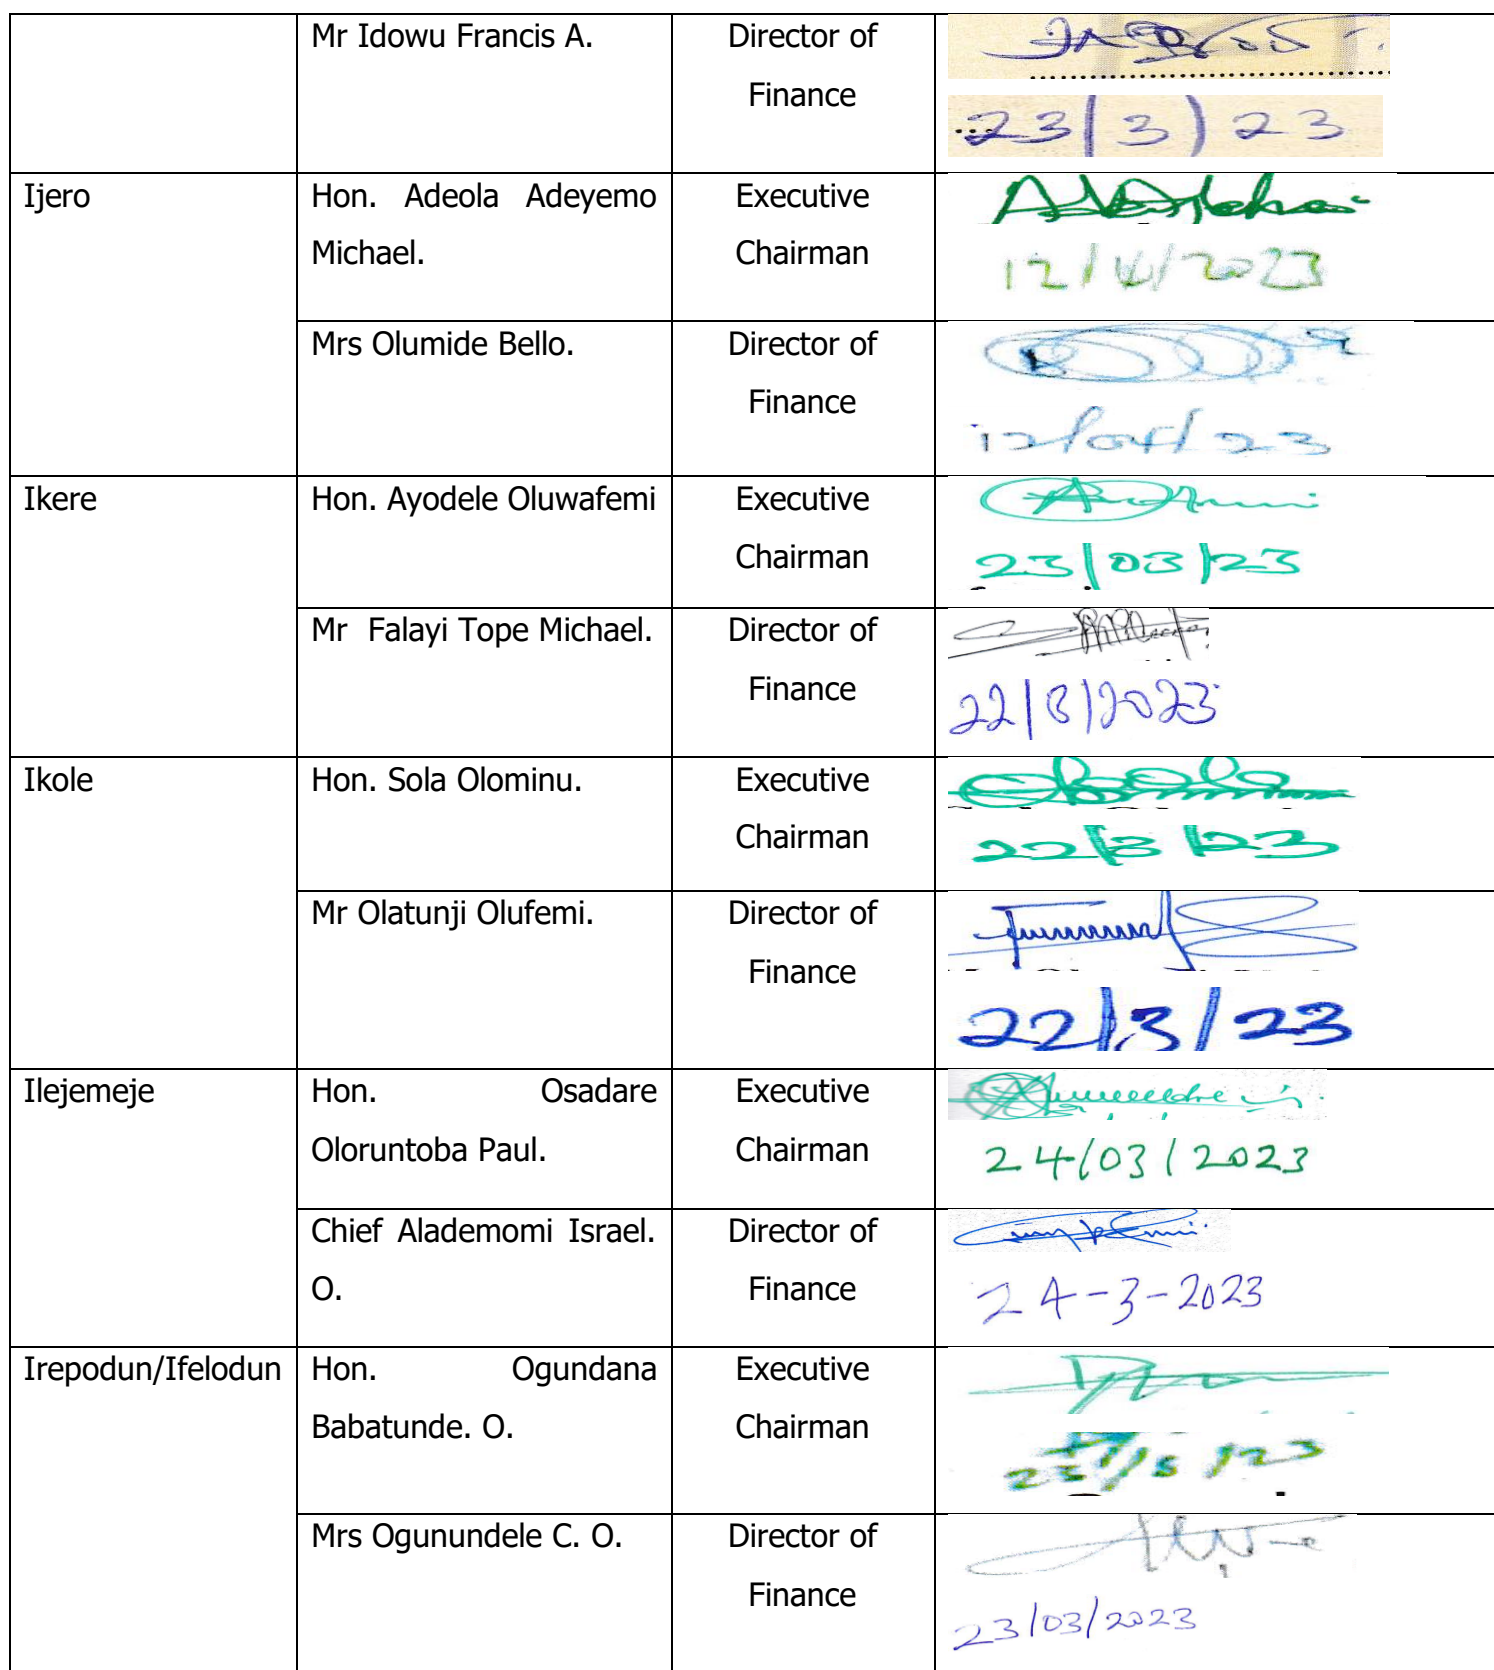 Mr Idowu Francis A.
Director of
Finance
23/3/23
Ijero
Hon. Adeola Adeyemo
Michael.
Executive
Chairman
12/4/2023
Mrs Olumide Bello.
Director of
Finance
12/04/23
Ikere
Hon. Ayodele Oluwafemi
Executive
Chairman
23/03/23
Mr Falayi Tope Michael.
Director of
Finance
22/3/2023
Ikole
Hon. Sola Olominu.
Executive
Chairman
22/3/23
Mr Olatunji Olufemi.
Director of
Finance
22/3/23
Ilejemeje
Hon. Osadare
Oloruntoba Paul.
Executive
Chairman
24/03/2023
Chief Alademomi Israel.
O.
Director of
Finance
24-3-2023
Irepodun/Ifelodun
Hon. Ogundana
Babatunde. O.
Executive
Chairman
Mrs Ogunundele C. O.
Director of
Finance
23/03/2023